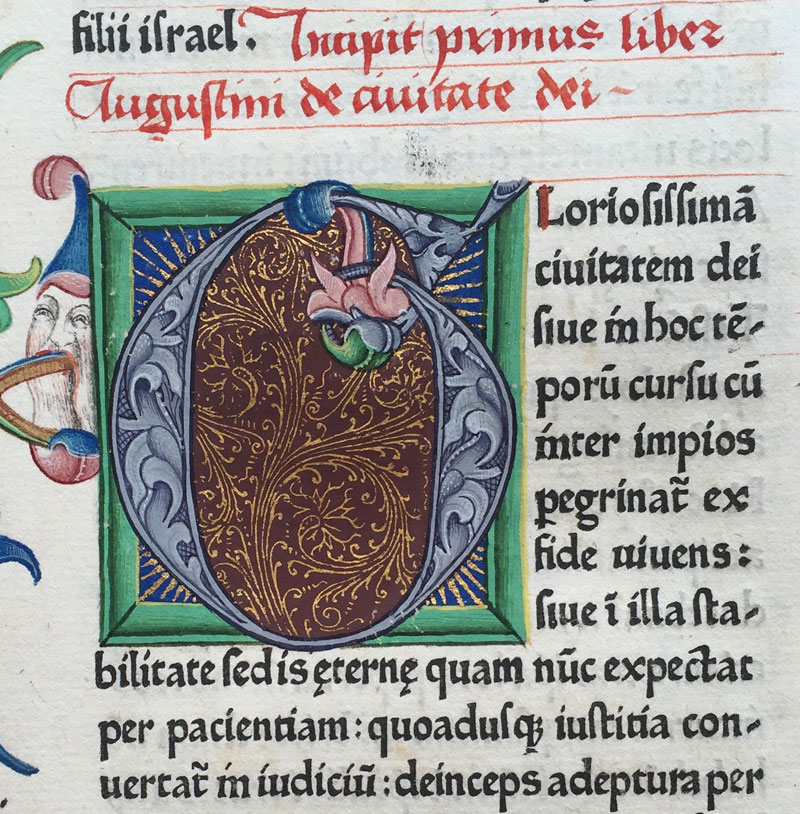 filii israel. Incipit primus liber
Augustini de ciuitate dei
G Loriosissimā
ciuitatem dei
siue in hoc tē-
porū cursu cū
inter impios
ꝑegrinat᷑ ex
fide uiuens:
siue ī illa sta-
bilitate sedis ęternę quam nūc expectat
per pacientiam: quoadusqꝫ iustitia con-
uertat᷑ in iudiciū: deinceps adeptura per